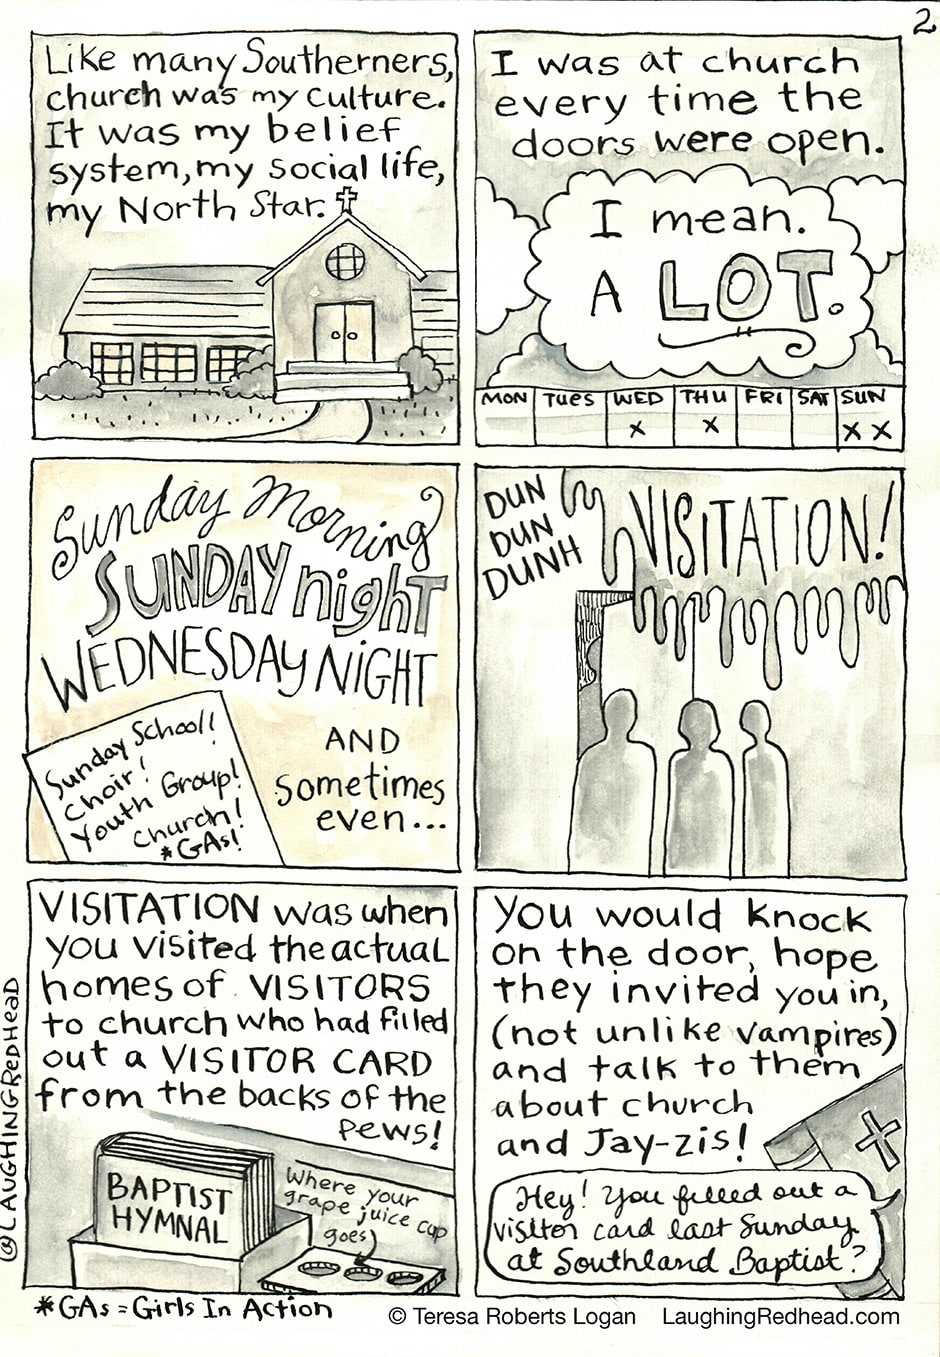 2
Like many Southerners,
church was my culture.
It was my belief
system, my social life,
my North Star.
I was at church
every time the
doors were open.
I mean.
A LOT.
MON TUES WED THU FRI SAT SUN
x x x x
Sunday Morning
SUNDAY night
WEDNESDAY NIGHT
Sunday School!
Choir!
Youth Group!
Church!
*GAs!
AND
sometimes
even...
DUN
DUN
DUNH
VISITATION!
VISITATION was when
you visited the actual
homes of VISITORS
to church who had filled
out a VISITOR CARD
from the backs of the
pews!
BAPTIST
HYMNAL
Where your
grape juice cup
goes
You would knock
on the door, hope
they invited you in,
(not unlike vampires)
and talk to them
about church
and Jay-zis!
Hey! You filled out a
visitor card last Sunday
at Southland Baptist?
@LAUGHINGREDHEAD
*GAs = Girls In Action
© Teresa Roberts Logan LaughingRedhead.com